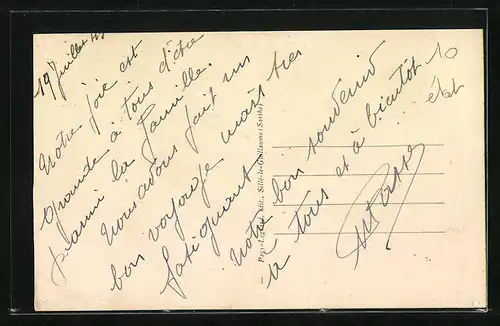 19 Juillet
Notre joie est
grande à tous d'être
parmi la famille.
Nous avons fait un
bon voyage mais très
fatiguant
Notre bon souvenir
à tous et à bientôt
Pays-, édit., Sillé-le-Guillaume (Sarthe)